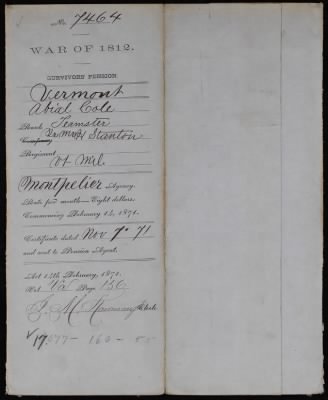 No. 7464
WAR OF 1812.
SURVIVORS PENSION
Vermont
Abial Cole
Rank, Teamster
Company, Stanton
Regiment, Vt Mil.
Montpelier Agency.
Rate per month—Eight dollars.
Commencing February 14, 1871.
Certificate dated Nov 7" 71
and sent to Pension Agent.
Act 14th February, 1871.
Vol. Page 130
J. M. Clerk